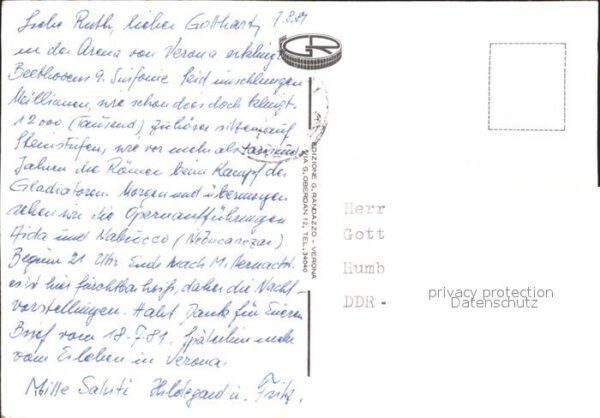 Liebe Ruth, lieber Gotthart, 7.8.81
in der Arena von Verona erklingt
Beethovens 9. Sinfonie Seid umschlungen
Millionen, wie schön dies doch klingt.
12000 (Tausend) Zuhörer sitzen auf
Steinstufen, wie vor mehr als tausend
Jahren die Römer beim Kampf der
Gladiatoren. Morgen und übermorgen
sehen wir die Opernaufführungen
Aida und Nabucco (Nebucanezar)
Beginn 21 Uhr Ende nach Mitternacht
es ist hier furchtbar heiß, daher die Nacht-
vorstellungen. Habt Dank für Euren
Brief vom 18.7.81. Späterhin mehr
vom Erleben in Verona.
Mille Saluti Hildegard u. Fritz.
GR
EDIZIONE G. RANDAZZO - VERONA
VIA G. OBERDAN 12, TEL. 34690
Herr
Gott
Humb
DDR -
privacy protection
Datenschutz